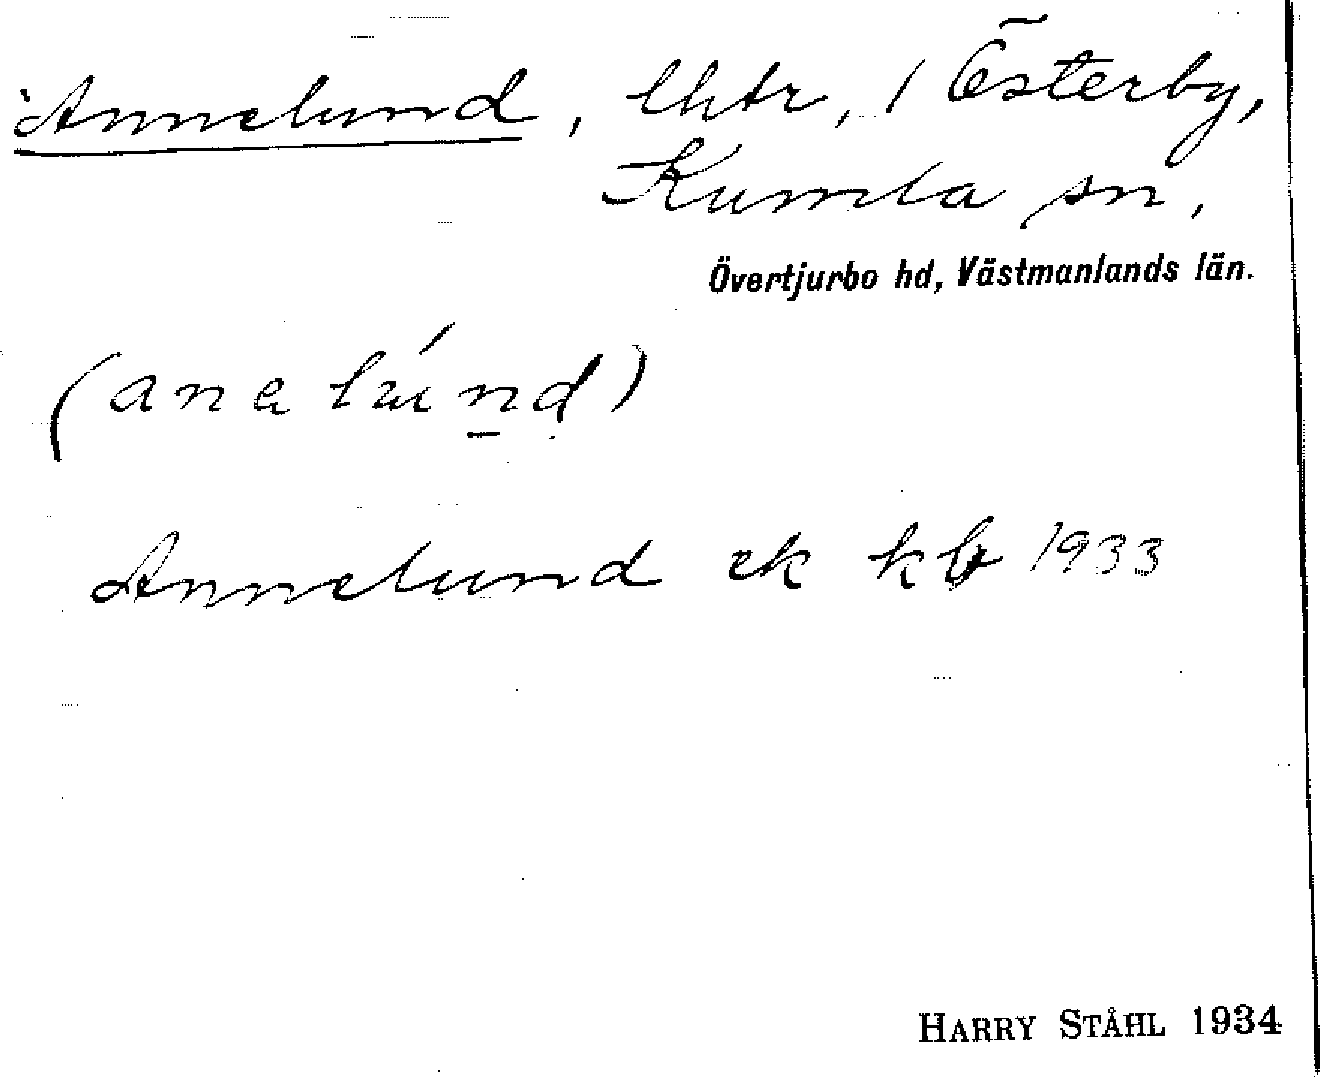 Annelund, lhtr, / Österby,
Kumla sn,
Övertjurbo hd, Västmanlands län.
(ana lúnd)
Annelund ek kb 1933
HARRY STÅHL 1934